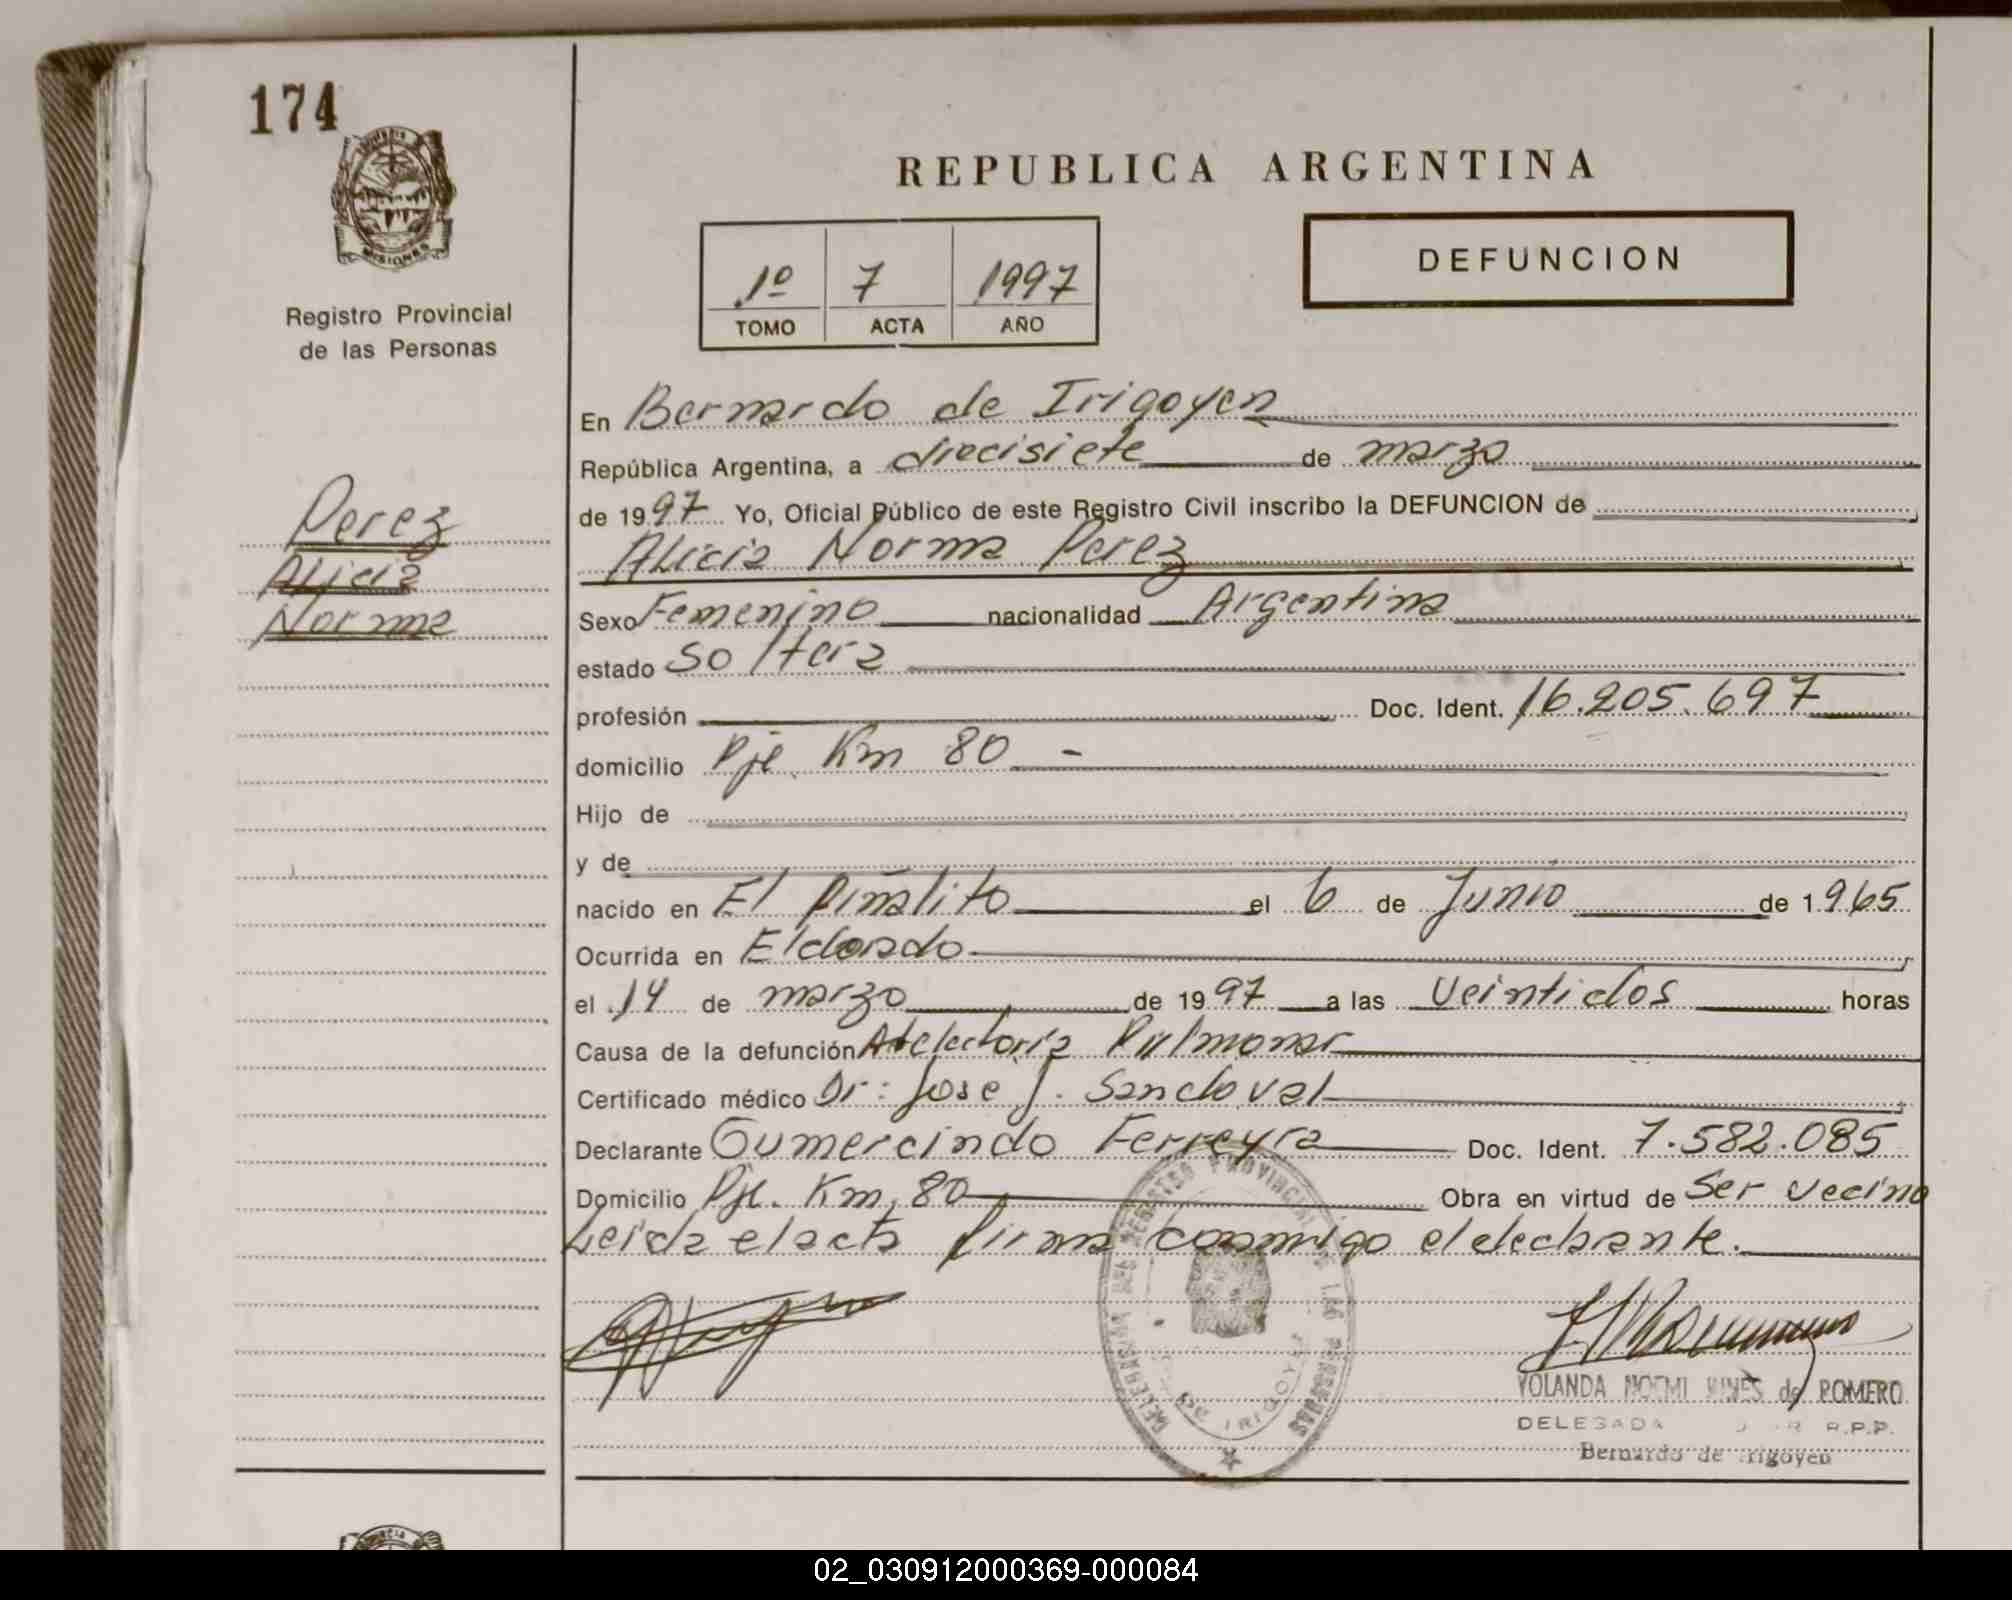 174
MISIONES
Registro Provincial
de las Personas
Perez
Alicia
Norma
REPUBLICA ARGENTINA
1º 7 1997
TOMO ACTA AÑO
DEFUNCION
En Bernardo de Irigoyen
República Argentina, a diecisiete de marzo
de 1997 Yo, Oficial Público de este Registro Civil inscribo la DEFUNCION de
Alicia Norma Perez
Sexo Femenino nacionalidad Argentina
estado Soltera
profesión Doc. Ident. 16.205.697
domicilio Pje. Km 80 -
Hijo de
y de
nacido en El Piñalito el 6 de Junio de 1965
Ocurrida en Eldorado
el 14 de marzo de 1997 a las veintidos horas
Causa de la defunción Pulmonar
Certificado médico Dr: Jose J. Sandoval
Declarante Gumercindo Ferreyra Doc. Ident. 7.582.085
Domicilio Pje. Km. 80 Obra en virtud de Ser vecino
Leida el acta firma conmigo el declarante.
REGISTRO PROVINCIAL DE LAS PERSONAS
DE IRIGOYEN
YOLANDA NOEMI de ROMERO
DELEGADA R.P.P.
Bernardo de Irigoyen
02_030912000369-000084